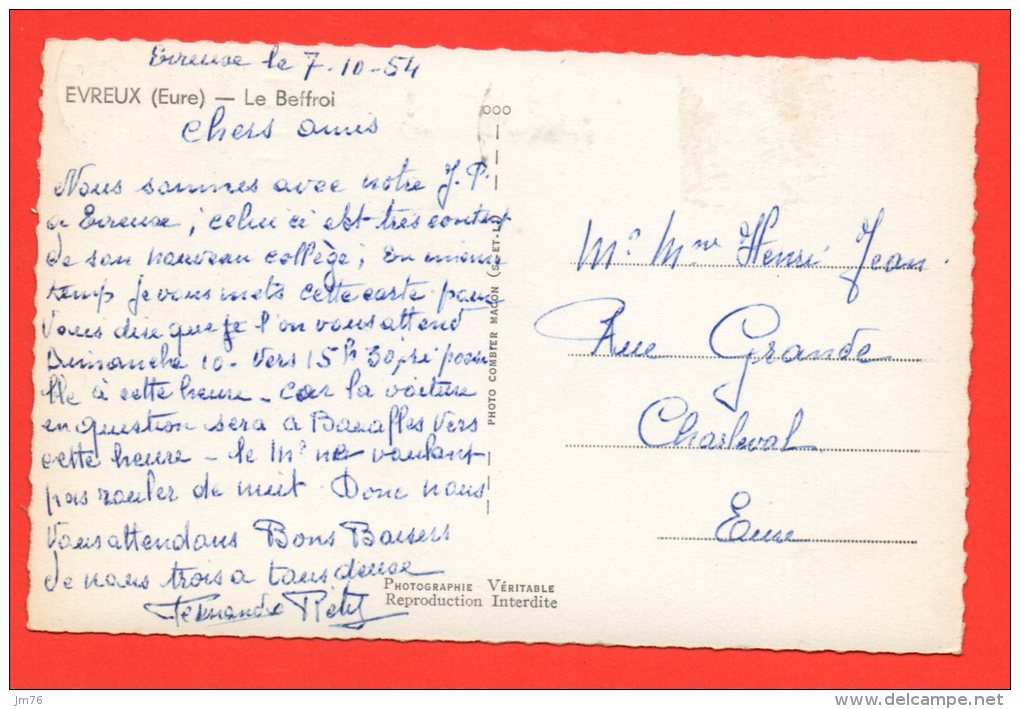 Evreuse le 7-10-54
EVREUX (Eure) — Le Beffroi
chers amis
Nous sommes avec notre J.P.
a Evreuse, celui ci est tres content
de son nouveau collège; En même
temp je vous mets cette carte pour
vous dire que l'on vous attend
Dimanche 10. Vers 15h30, si possi
ble à cette heure - car la voiture
en question sera a Bazalles vers
cette heure - le Mr ne voulant
pas rouler de nuit. Donc nous
vous attendons Bons Baisers
de nous trois a tous deuse
Fernande
PHOTO COMBIER MACON (S.-ET-L.)
PHOTOGRAPHIE VÉRITABLE
Reproduction Interdite
Mr Mme Henri Jean.
Rue Grande
Charleval
Eure
jm76
www.delcampe.net